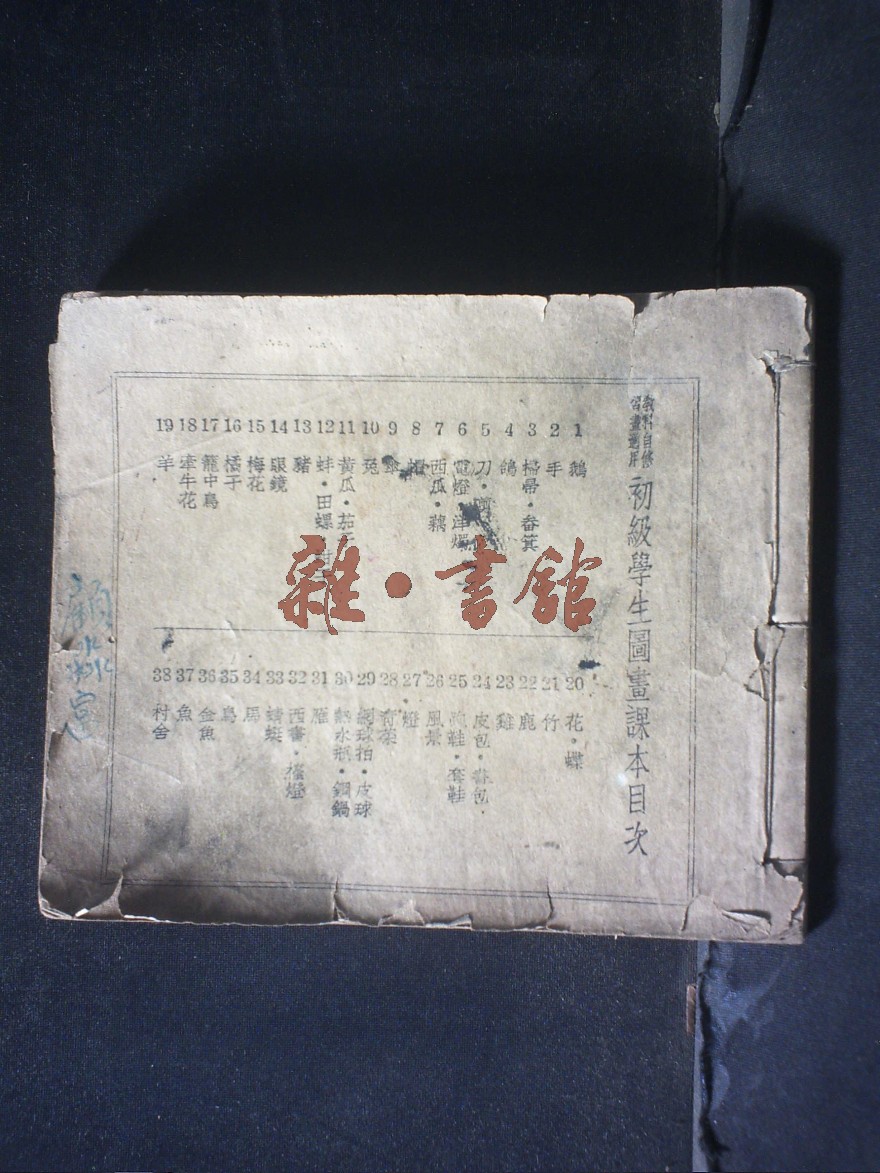 教科自修
習畫適用
初級學生圖畫課本目次
1 鵝
2 手
3 掃帚·畚箕
4 鴿
5 刀
6 電燈·洋燭
7 西瓜·藕
8 帽
9 傘
10 兎
11 黃瓜·茄子
12 蚌·田螺
13 豬
14 眼鏡
15 梅花
16 橘子
17 籠中鳥
18 牽牛花
19 羊
20 花·蝶
21 竹
22 鹿
23 雞
24 皮包·書包·
25 鞋·套鞋
26 風景
27 燈
28 菜
29 網球拍·皮球
30 熱水瓶·鋼鍋
31 雁
32 西書·檯燈
33 蜻蜓
34 馬
35 鳥
36 金魚
37 魚
38 村舍
雜·書館